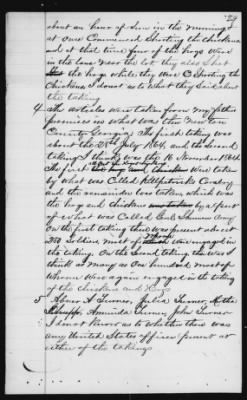 29
about an hour of Sun in the morning
at one Command Shooting the chickens
and at that time four of the hogs were
in the lane near the lot they also shot
the hogs while they were Shooting the
Chickens I do not as to What they Said about
the taking
4 The articles were taken from my father
premises in what was then Newton
County Georgia. The first taking was
about the 28th July 1864, and the Second
taking I think was the 16 November 1864.
The first were taken
by what was Called Kilpatricks Cavalry
and the remainder were taken, which was
the hogs and chickens by a part
of what was Called Genl. Shermans Army
On the first taking there was present about
Soldiers most of whom were engaged in
the taking. On the Second taking there was I
think as many as One hundred most of
Whom were again engaged in the taking
of the chickens and Hogs
5 Abner A Turner, Julia Turner,
Amanda Turner, John Turner
I do not know as to whether there was
any United States officer present at
either of the takings